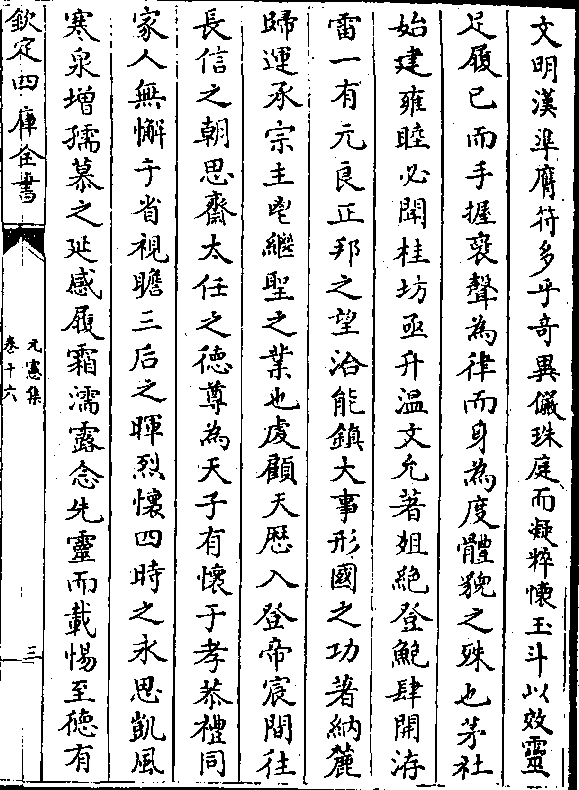 文明漢準膺符多乎奇異儼珠庭而凝粹懐玉斗以效靈
足履已而手握褒聲為律而身為度體貌之殊也茅社
始建雍睦必聞桂坊亟升温文允著俎絶登鮑肆開洊
雷一有元良正邦之望洽能鎮大事形國之功著納麓
歸運承宗主鬯繼聖之業也虔顧天厯入登帝宸間往
長信之朝思齋太任之徳尊為天子有懐于孝恭禮同
家人無懈于省視瞻三后之暉烈懷四時之永思凱風
寒泉増孺慕之延感履霜濡露念先靈而載惕至徳有
欽定四庫全書
元憲集
卷十六
三